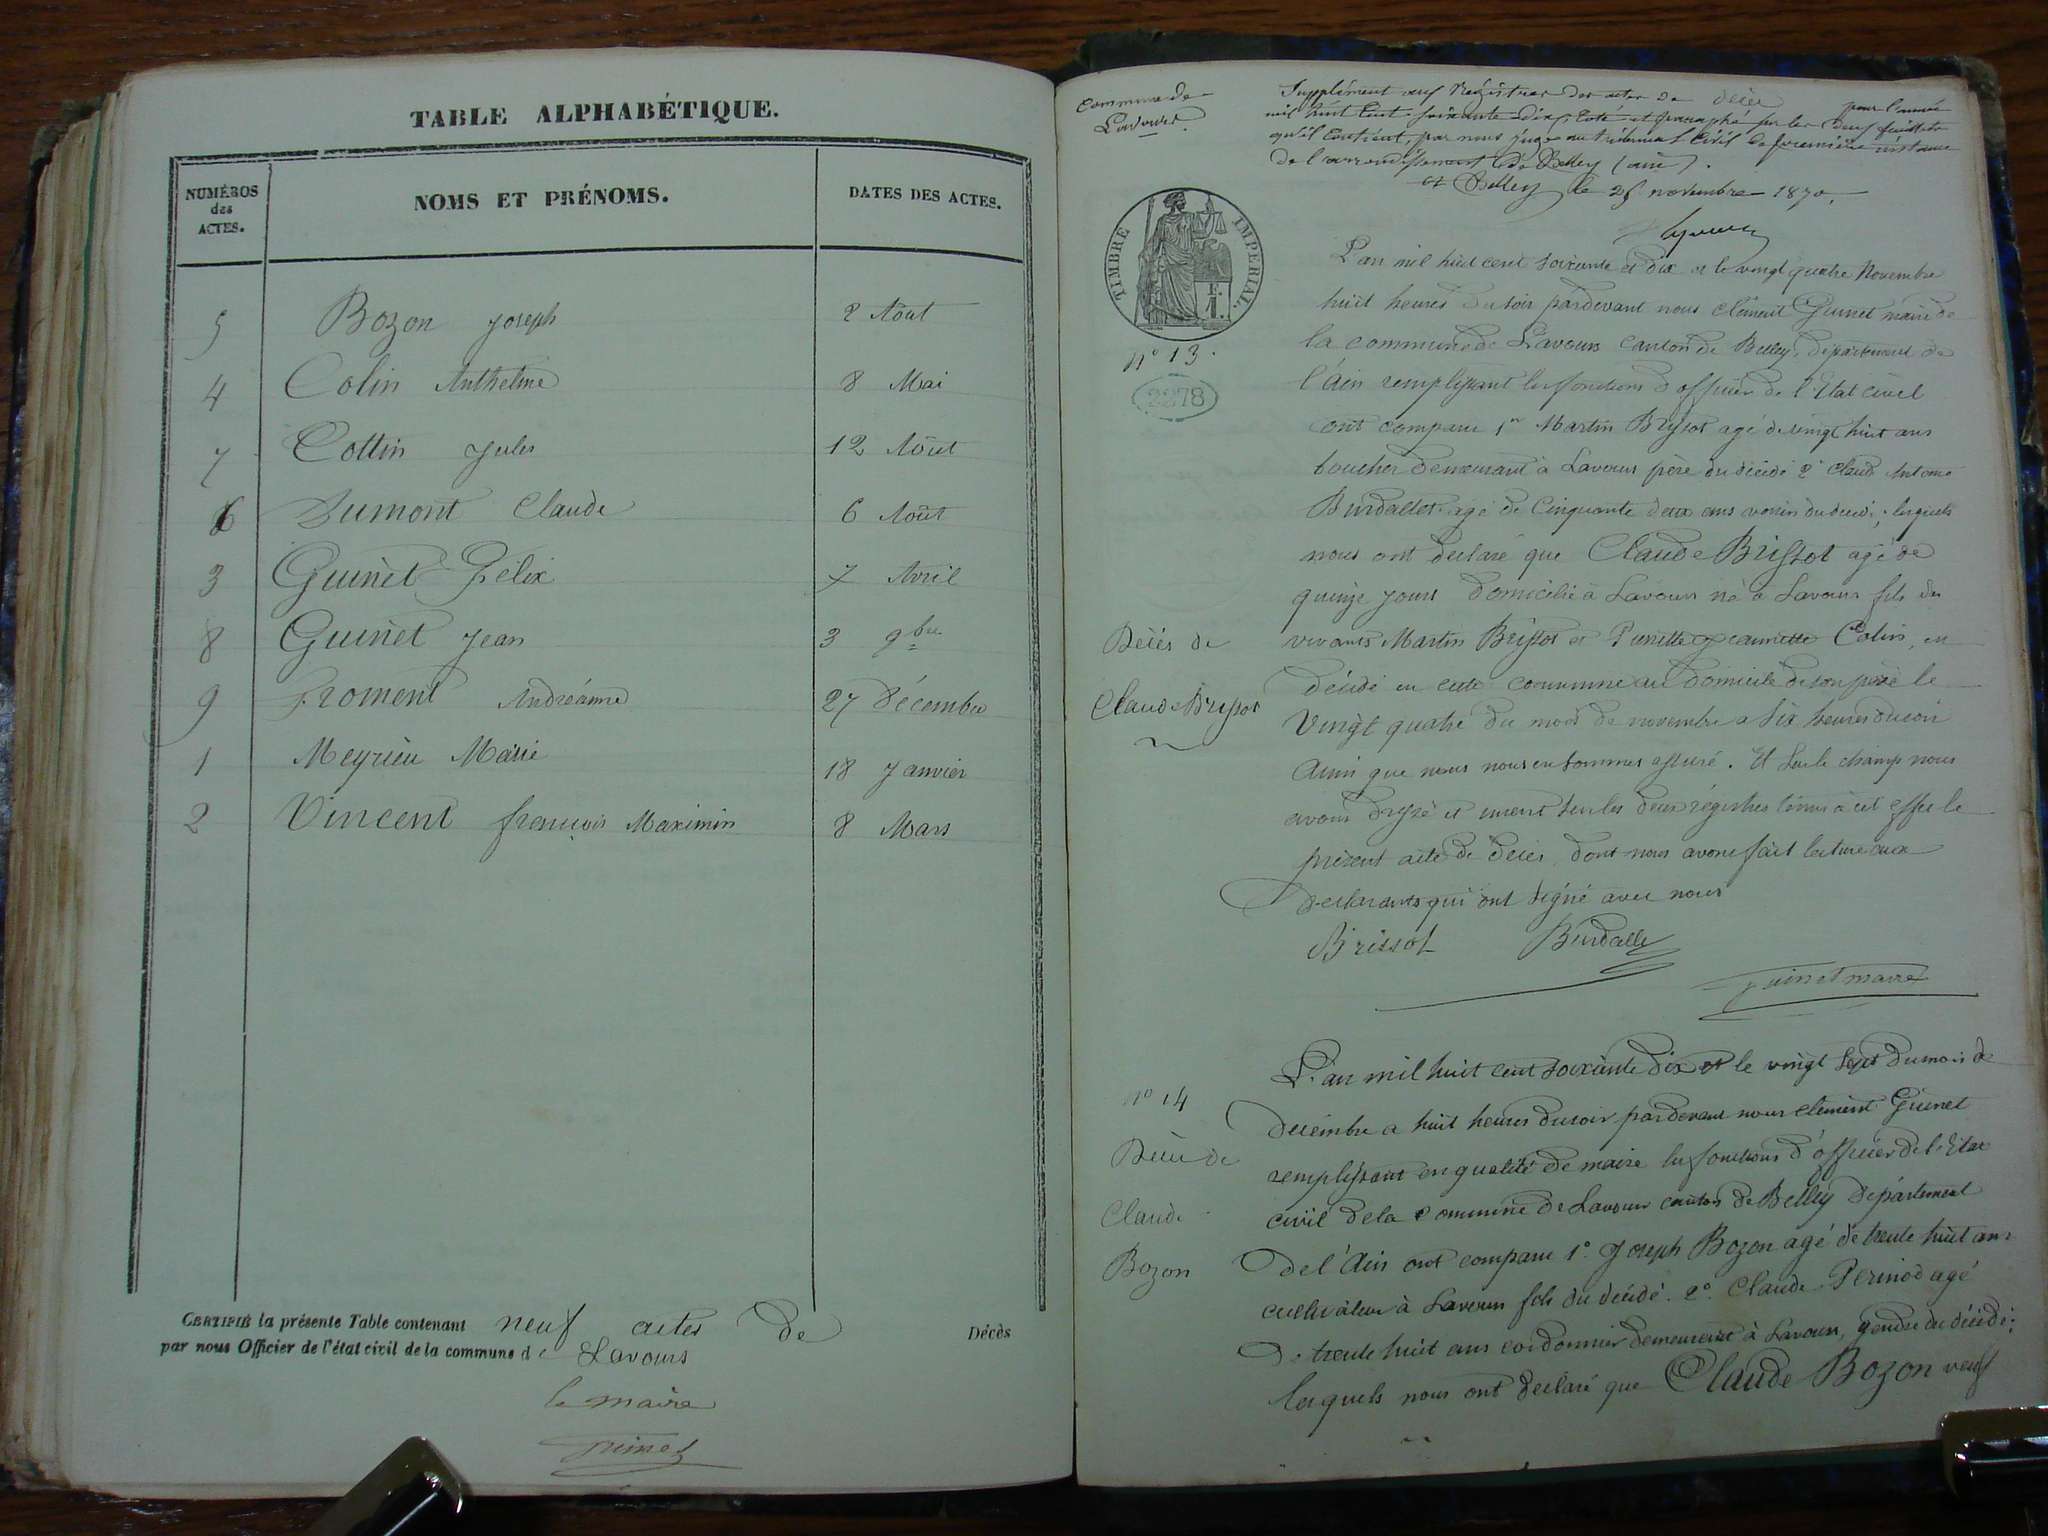 TABLE ALPHABÉTIQUE.
NUMÉROS
des
ACTES.
NOMS ET PRÉNOMS.
DATES DES ACTES.
5 Bozon Joseph 2 Août
4 Colin Anthelme 8 Mai
7 Cottin Jules 12 Août
6 Dumont Claude 6 Août
3 Guinet Félix 7 Avril
8 Guinet Jean 3 9bre
9 Froment Andréanne 27 Décembre
1 Meyrieu Marie 18 Janvier
2 Vincent françois Maximin 8 Mars
CERTIFIÉ la présente Table contenant neuf actes de Décès
par nous Officier de l'état civil de la commune de Lavours
le maire
Guinet
Commune de
Lavours
Supplément aux Régistres des actes de décès pour l'année
mil huit cent soixante dix, coté et paraphé sur les deux feuillets
qu'il contient, par nous juge au tribunal civil de première instance
de l'arrondissement de Belley (ain).
à Belley le 25 novembre 1870.
TIMBRE IMPÉRIAL.
N° 13.
2278
L'an mil huit cent soixante et dix et le vingt quatre Novembre
huit heures du soir pardevant nous Clément Guinet maire de
la commune de Lavours canton de Belley, département de
l'Ain remplissant les fonctions d'officier de l'Etat civil
ont comparu 1er Martin Brissot agé de vingt huit ans
boucher demeurant à Lavours père du décédé 2° Claude Antoine
Burdallet agé de Cinquante deux ans voisin du décédé; lesquels
nous ont déclaré que Claude Brissot agé de
quinze jours domicilié à Lavours né à Lavours fils des
vivants Martin Brissot et Pierrette Jeannette Colin, est
décédé en cette commune au domicile de son père le
vingt quatre du mois de novembre a six heures du soir
Ainsi que nous nous en sommes assuré. Et sur le champ nous
avons dressé et inscrit sur les deux régistres tenus à cet effet le
présent acte de décès, dont nous avons fait lecture aux
déclarants qui ont signé avec nous
Décès de
Claude Brissot
Brissot Burdallet
Guinet maire
N° 14
Décès de
Claude
Bozon
L'an mil huit cent soixante dix et le vingt sept du mois de
décembre a huit heures du soir pardevant nous Clément Guinet
remplissant en qualité de maire les fonctions d'officier de l'Etat
civil de la commune de Lavours canton de Belley département
de l'Ain ont comparu 1° Joseph Bozon agé de trente huit ans
cultivateur à Lavours fils du décédé. 2° Claude Perinod agé
de trente huit ans cordonnier demeurant à Lavours, gendre du décédé;
lesquels nous ont déclaré que Claude Bozon veuf